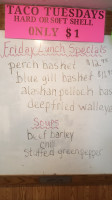 TACO TUESDAYS
HARD OR SOFT SHELL
ONLY $1
Friday Lunch Specials
perch basket
blue gill basket
alaskan pollock bask
deep fried walleye
Soups
Beef barley
chili
stuffed green pepper